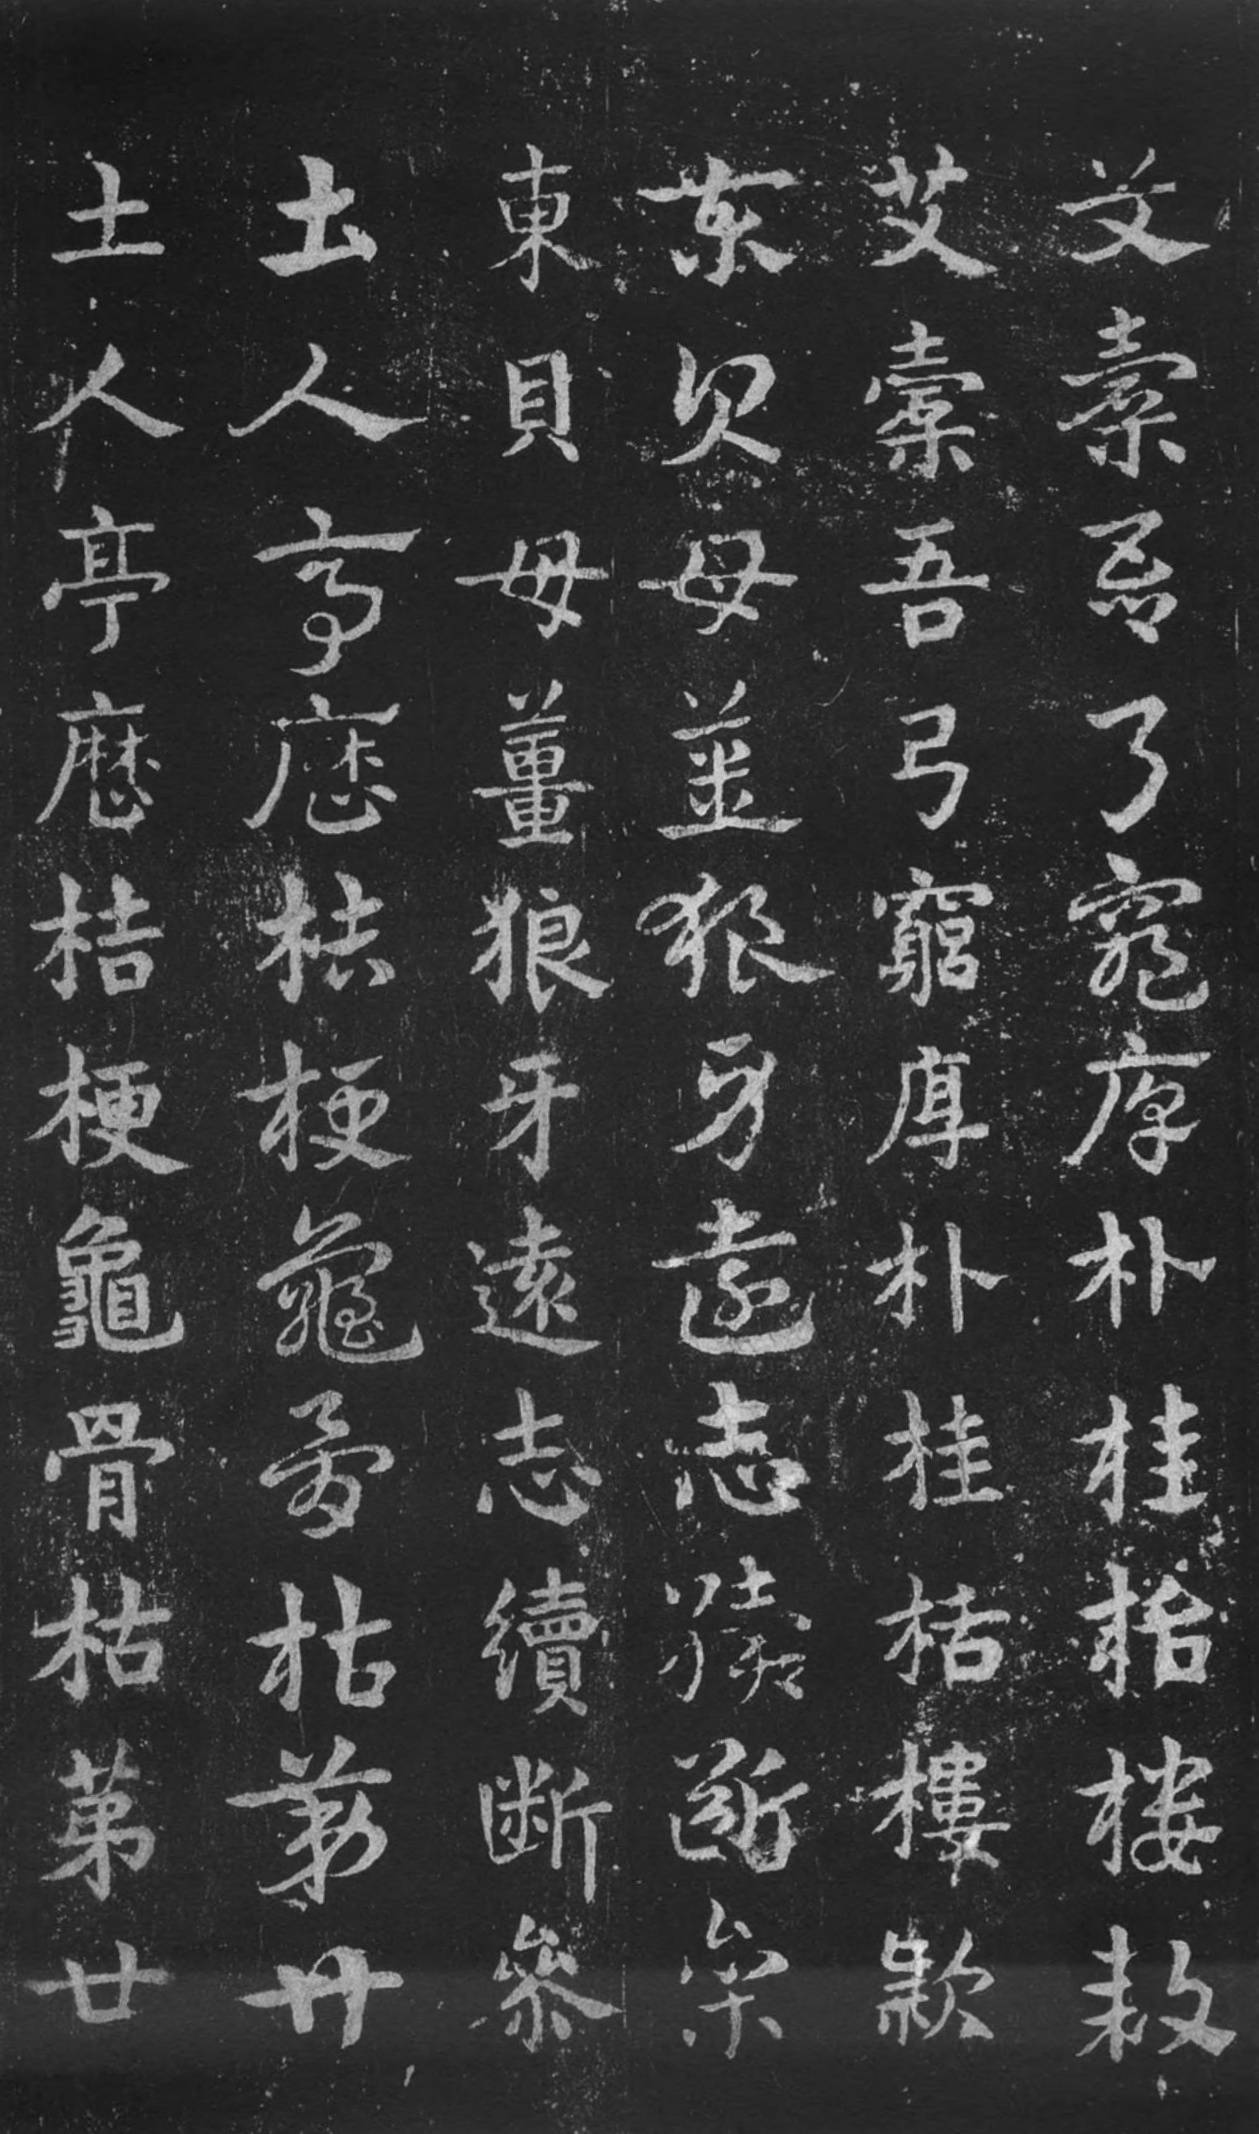 艾橐吾弓窮厚朴桂栝樓款
艾橐吾弓窮厚朴桂栝樓款
東貝母薑狼牙遠志續斷參
東貝母薑狼牙遠志續断參
土人亭歷桔梗龜骨枯苐廿
土人亭歷桔梗龜骨枯苐廿